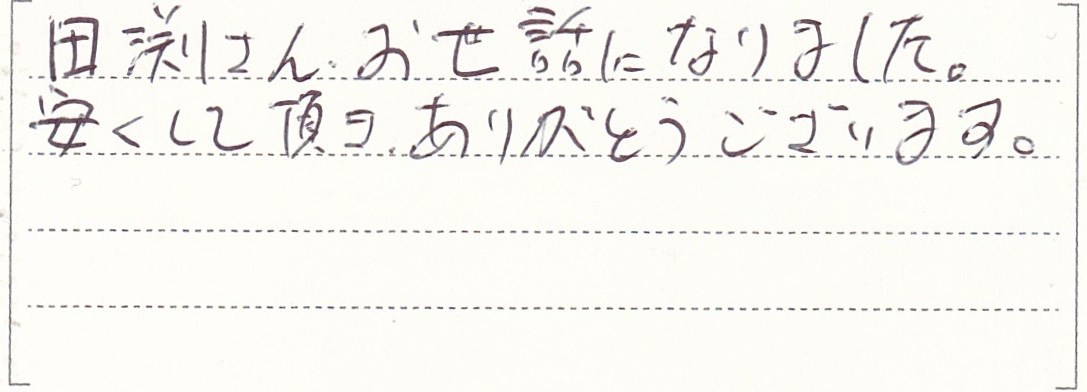 田渕さん、お世話になりました。
安くして頂き、ありがとうございます。